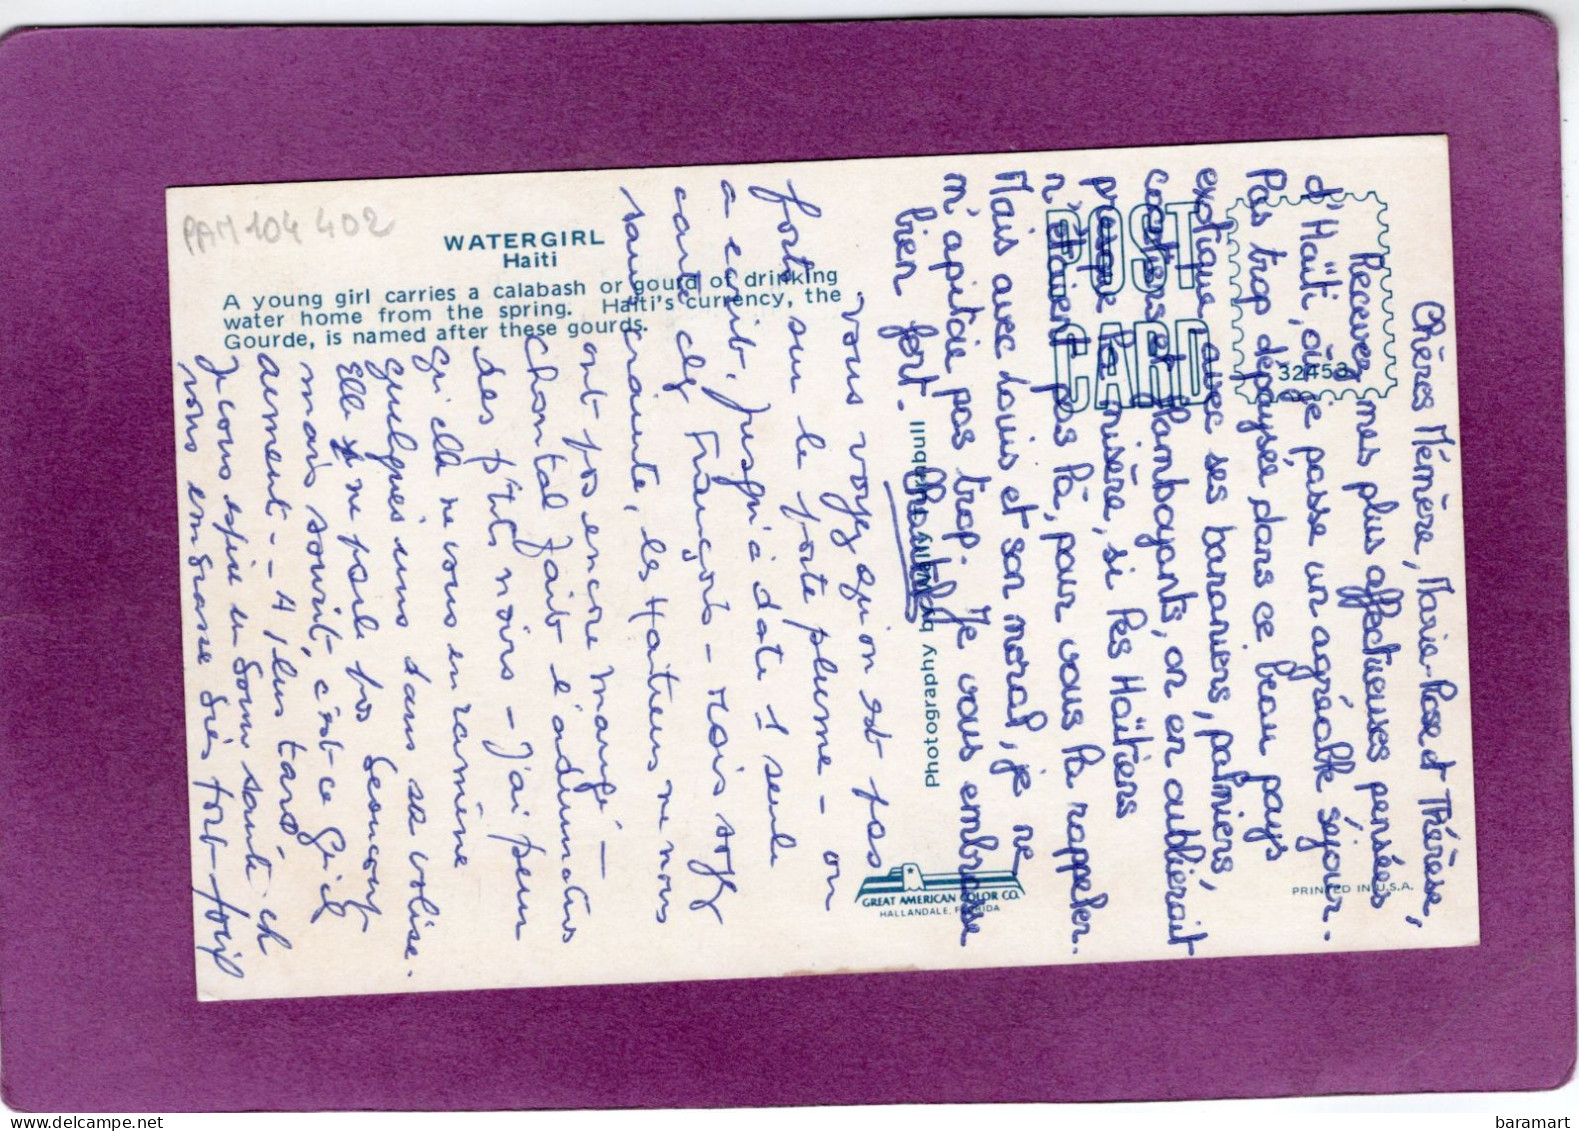 PAM 104 402
WATERGIRL
Haiti
A young girl carries a calabash or gourd of drinking
water home from the spring. Haiti's currency, the
Gourde, is named after these gourds.
POST
CARD
32453
Photography by Wally Turnbull
GREAT AMERICAN COLOR CO.
HALLANDALE, FLORIDA
PRINTED IN U.S.A.
Chères Mémère, Marie-Rose et Thérèse,
Recevez mes plus affectueuses pensées
d'Haïti, où je passe un agréable séjour.
Pas trop dépaysée dans ce beau pays
exotique, avec ses bananiers, palmiers,
cocotiers et flamboyants, on en oublierait
presque la misère, si les Haïtiens
n'étaient pas là, pour vous la rappeler.
Mais avec Louis et son moral, je ne
m'apitoie pas trop. Je vous embrasse
bien fort. Chantal
vous voyez qu'on est pas
forts sur le porte plume - on
a écrit, jusqu'à date 1 seule
carte chez François - Mais soyez
sans crainte, les Haïtiens ne nous
ont pas encore mangé -
Chantal fait l'admiration
des p'tits noirs - J'ai peur
qu'elle ne vous en ramène
quelques uns dans sa valise.
Elle ne parle pas beaucoup
mais sourit, c'est ce qu'il
aiment - A plus tard
Je vous espère en bonne santé et
vous embrasse très fort